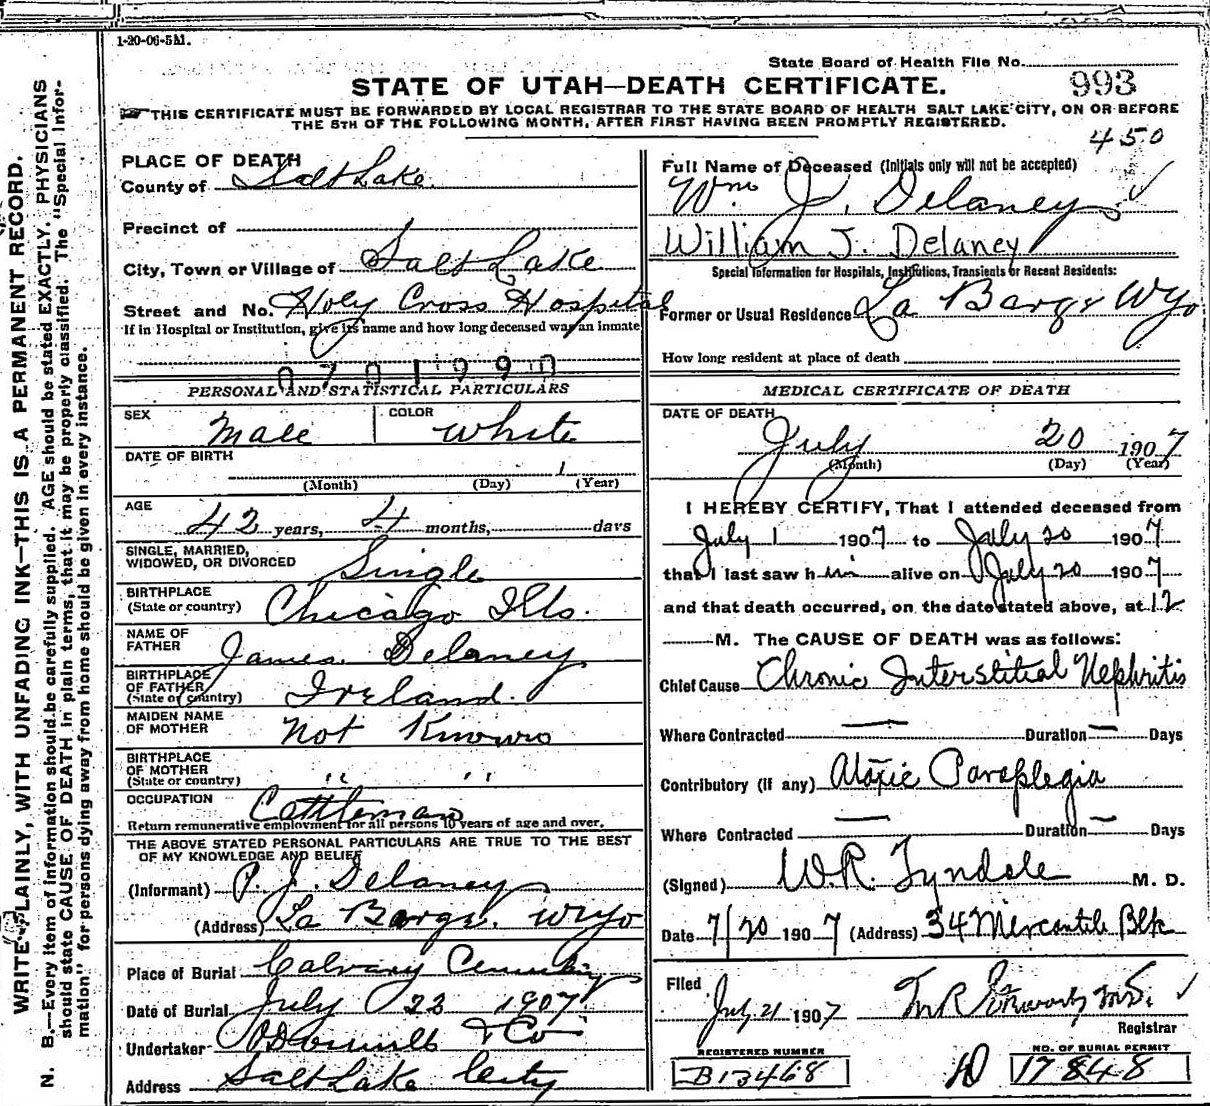 1-20-06-5M.
State Board of Health File No. 993
STATE OF UTAH—DEATH CERTIFICATE.
THIS CERTIFICATE MUST BE FORWARDED BY LOCAL REGISTRAR TO THE STATE BOARD OF HEALTH SALT LAKE CITY, ON OR BEFORE
THE 5TH OF THE FOLLOWING MONTH, AFTER FIRST HAVING BEEN PROMPTLY REGISTERED.
450
WRITE PLAINLY, WITH UNFADING INK—THIS IS A PERMANENT RECORD.
N. B.—Every item of information should be carefully supplied. AGE should be stated EXACTLY. PHYSICIANS
should state CAUSE OF DEATH in plain terms, that it may be properly classified. The "Special Infor-
mation" for persons dying away from home should be given in every instance.
PLACE OF DEATH
County of Salt Lake
Precinct of
City, Town or Village of Salt Lake
Street and No. Holy Cross Hospital
If in Hospital or Institution, give its name and how long deceased was an inmate
PERSONAL AND STATISTICAL PARTICULARS
SEX Male COLOR White
DATE OF BIRTH 1
(Month) (Day) (Year)
AGE 42 years, 4 months, days
SINGLE, MARRIED,
WIDOWED, OR DIVORCED Single
BIRTHPLACE
(State or country) Chicago Ills.
NAME OF
FATHER James Delaney
BIRTHPLACE
OF FATHER
(State or country) Ireland.
MAIDEN NAME
OF MOTHER Not Known
BIRTHPLACE
OF MOTHER
(State or country) " "
OCCUPATION Cattleman
Return remunerative employment for all persons 10 years of age and over.
THE ABOVE STATED PERSONAL PARTICULARS ARE TRUE TO THE BEST
OF MY KNOWLEDGE AND BELIEF
(Informant) P. J. Delaney
(Address) La Barge. Wyo
Place of Burial Calvary Cemetery
Date of Burial July 23 1907
Undertaker O'Donnell & Co
Address Salt Lake City
Full Name of Deceased (Initials only will not be accepted)
Wm J. Delaney
William J. Delaney
Special Information for Hospitals, Institutions, Transients or Recent Residents:
Former or Usual Residence La Barge Wyo
How long resident at place of death
MEDICAL CERTIFICATE OF DEATH
DATE OF DEATH
July 20 1907
(Month) (Day) (Year)
I HEREBY CERTIFY, That I attended deceased from
July 1 1907 to July 20 1907
that I last saw h im alive on July 20 1907
and that death occurred, on the date stated above, at 12
M. The CAUSE OF DEATH was as follows:
Chief Cause Chronic Interstitial Nephritis
Where Contracted — Duration — Days
Contributory (if any) Ataxic Paraplegia
Where Contracted — Duration — Days
(Signed) W. R. Tyndale M. D.
Date 7/20 1907 (Address) 34 Mercantile Blk
Filed
July 21 1907
Registrar
REGISTERED NUMBER
B13468
NO. OF BURIAL PERMIT
17848